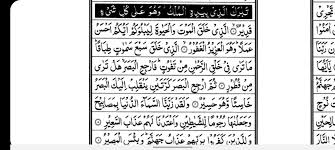 تَبٰرَكَ الَّذِىْ بِيَدِهِ الْمُلْكُ وَهُوَ عَلٰى كُلِّ شَىْءٍ
قَدِيْرُ ۙ الَّذِىْ خَلَقَ الْمَوْتَ وَالْحَيٰوةَ لِيَبْلُوَكُمْ اَيُّكُمْ اَحْسَنُ
عَمَلًا ؕ وَهُوَ الْعَزِيْزُ الْغَفُوْرُ ۙ الَّذِىْ خَلَقَ سَبْعَ سَمٰوٰتٍ طِبَاقًا ؕ
مَا تَرٰى فِىْ خَلْقِ الرَّحْمٰنِ مِنْ تَفٰوُتٍ ؕ فَارْجِعِ الْبَصَرَ ۙ هَلْ تَرٰى
مِنْ فُطُوْرٍ ثُمَّ ارْجِعِ الْبَصَرَ كَرَّتَيْنِ يَنْقَلِبْ اِلَيْكَ الْبَصَرُ
خَاسِئًا وَّهُوَ حَسِيْرٌ وَلَقَدْ زَيَّنَّا السَّمَآءَ الدُّنْيَا بِمَصَابِيْحَ
وَجَعَلْنٰهَا رُجُوْمًا لِّلشَّيٰطِيْنِ وَاَعْتَدْنَا لَهُمْ عَذَابَ السَّعِيْرِ
وَلِلَّذِيْنَ كَفَرُوْا بِرَبِّهِمْ عَذَابُ جَهَنَّمَ ؕ وَبِئْسَ الْمَصِيْرُ